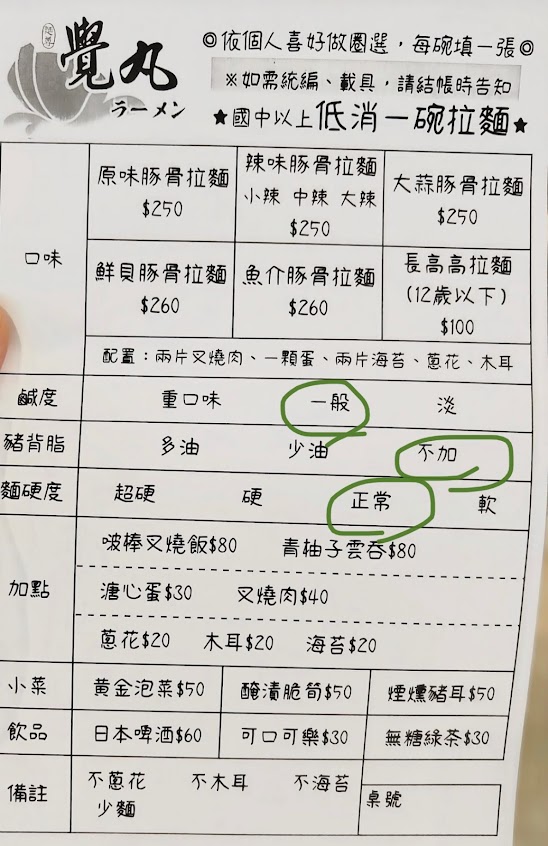 覺丸
ラーメン
◎依個人喜好做圈選，每碗填一張◎
※如需統編、載具，請結帳時告知
★國中以上低消一碗拉麵★
口味
原味豚骨拉麵
$250
辣味豚骨拉麵
小辣 中辣 大辣
$250
大蒜豚骨拉麵
$250
鮮貝豚骨拉麵
$260
魚介豚骨拉麵
$260
長高高拉麵
(12歲以下)
$100
配置：兩片叉燒肉、一顆蛋、兩片海苔、蔥花、木耳
鹹度 重口味 一般 淡
豬背脂 多油 少油 不加
麵硬度 超硬 硬 正常 軟
加點
啵棒叉燒飯$80 青柚子雲吞$80
溏心蛋$30 叉燒肉$40
蔥花$20 木耳$20 海苔$20
小菜 黃金泡菜$50 醃漬脆筍$50 煙燻豬耳$50
飲品 日本啤酒$60 可口可樂$30 無糖綠茶$30
備註
不蔥花 不木耳 不海苔
少麵
桌號